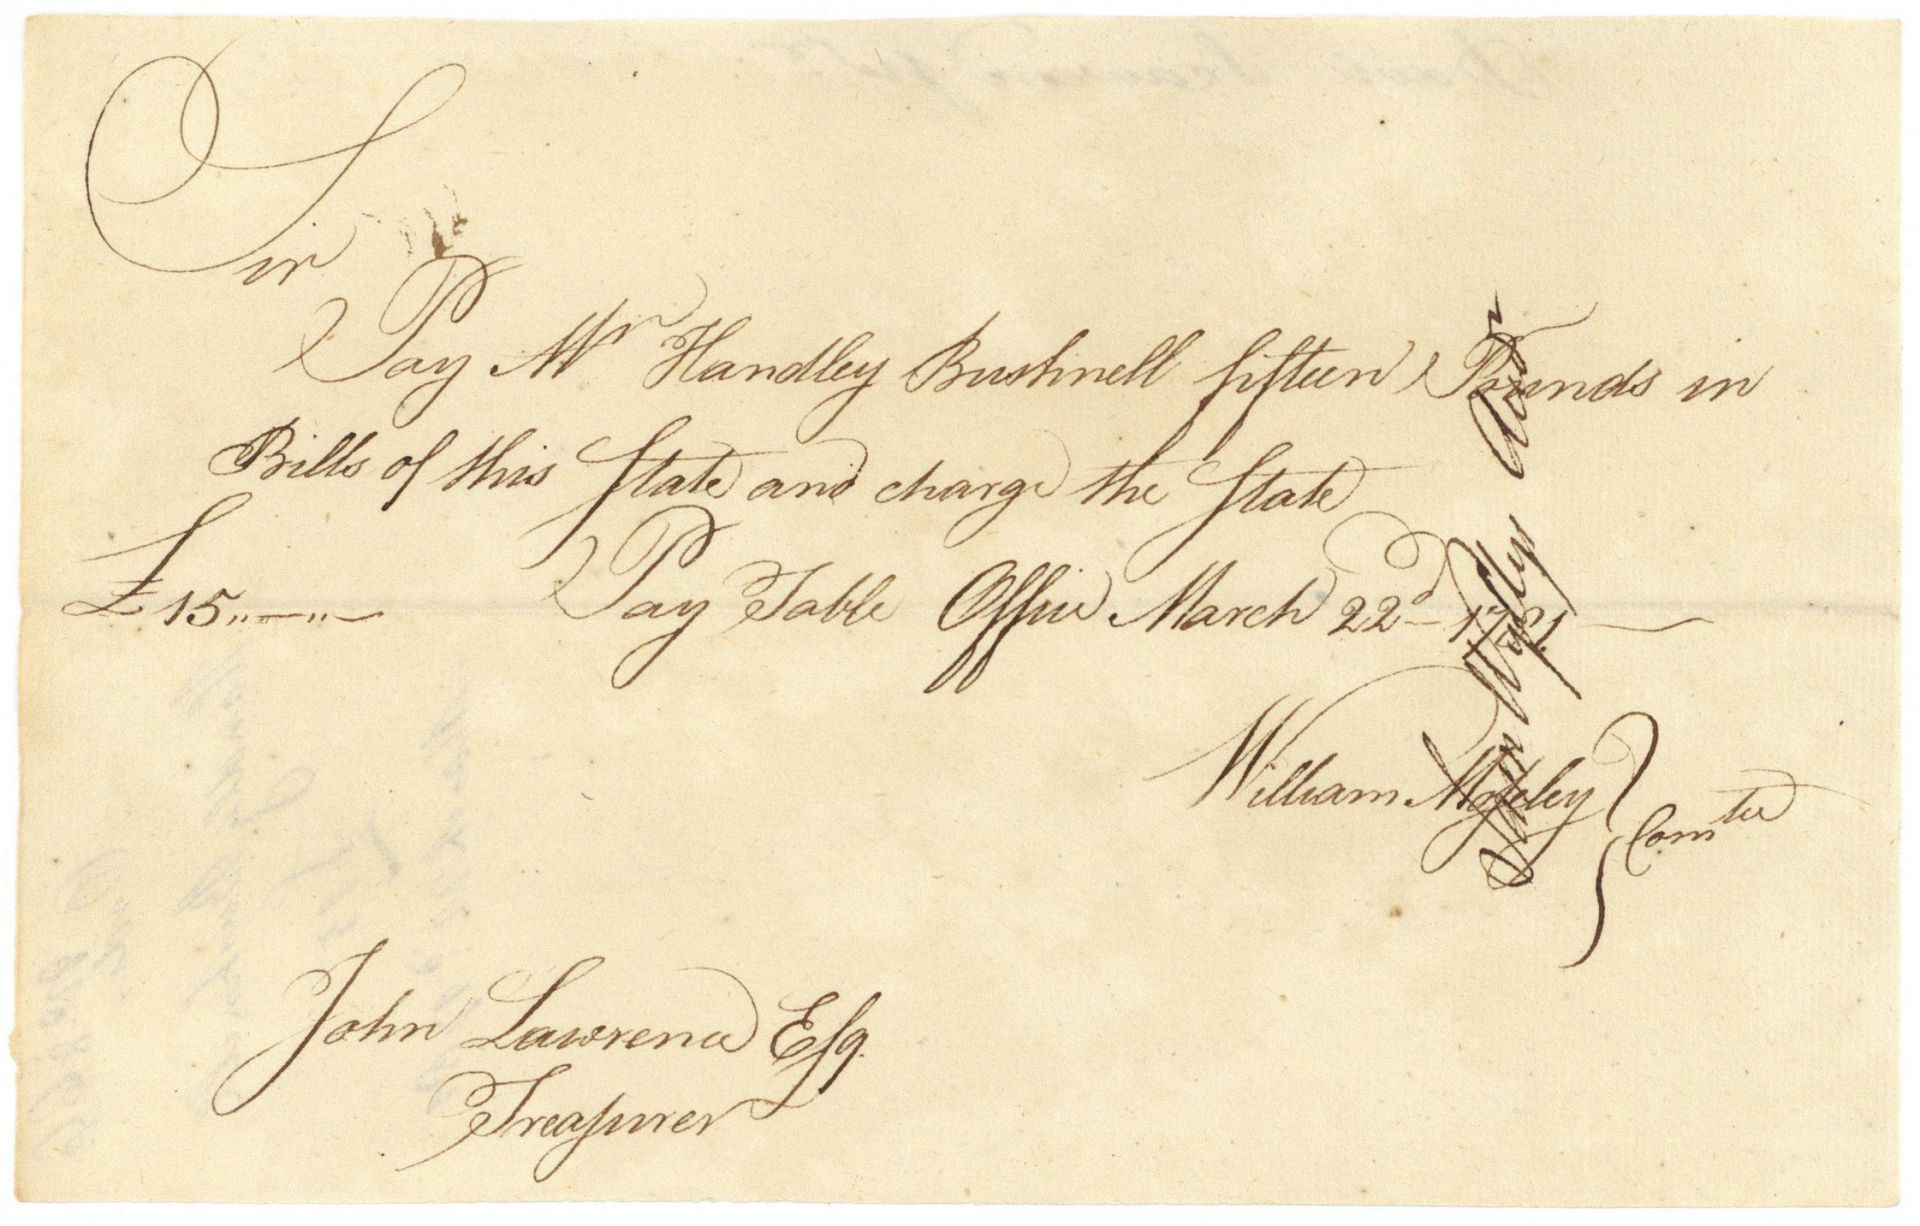 Sir
Pay Mr Handley Bushnell fifteen Pounds in
Bills of this State and charge the State
£15,,—,,— Pay Table Office March 22d 1781
William Moseley } Comtee
John Lawrence Esq.
Treasurer
Wyllys